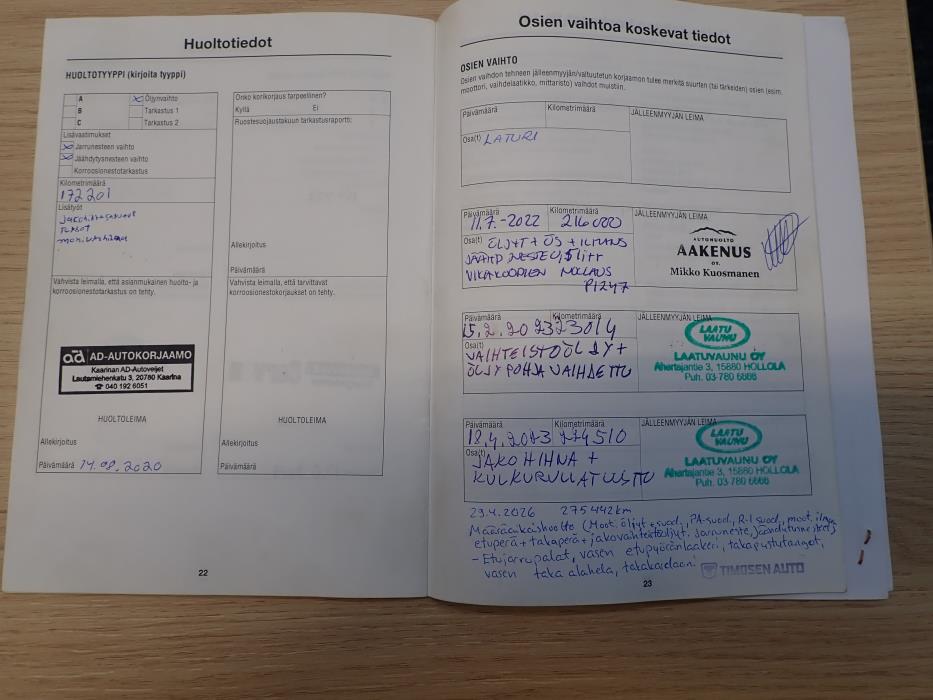 Huoltotiedot
HUOLTOTYYPPI (kirjoita tyyppi)
A
B
C
Öljynvaihto
Tarkastus 1
Tarkastus 2
Lisävaatimukset
Jarrunesteen vaihto
Jäähdytysnesteen vaihto
Korroosionestotarkastus
Kilometrimäärä
172201
Lisätyöt
Vahvista leimalla, että asianmukainen huolto- ja
korroosionestotarkastus on tehty.
ad AD-AUTOKORJAAMO
Kaarinan AD-Autoveljet
Lautamiehenkatu 3, 20780 Kaarina
☎ 040 192 6051
HUOLTOLEIMA
Allekirjoitus
Päivämäärä 14.08.2020
Onko korikorjaus tarpeellinen?
Kyllä Ei
Ruostesuojaustakuun tarkastusraportti:
Allekirjoitus
Päivämäärä
Vahvista leimalla, että tarvittavat
korroosionestokorjaukset on tehty.
HUOLTOLEIMA
Allekirjoitus
Päivämäärä
22
Osien vaihtoa koskevat tiedot
OSIEN VAIHTO
Osien vaihdon tehneen jälleenmyyjän/valtuutetun korjaamon tulee merkitä suurten (tai tärkeiden) osien (esim.
moottori, vaihdelaatikko, mittaristo) vaihdot muistiin.
Päivämäärä Kilometrimäärä JÄLLEENMYYJÄN LEIMA
Osa(t) LATURI
Päivämäärä Kilometrimäärä JÄLLEENMYYJÄN LEIMA
11.7.-2022 216000
Osa(t) ÖLJYT + ÖS + ILMANS
JÄÄHD NESTE 0,5 litr
VIKAKOODIEN NOLLAUS
P1247
AUTOHUOLTO
AAKENUS
OY.
Mikko Kuosmanen
Päivämäärä Kilometrimäärä JÄLLEENMYYJÄN LEIMA
Osa(t)
VAIHTEISTOÖLJY +
ÖLJYPOHJA VAIHDETTU
LAATU
VAUNU
LAATUVAUNU OY
Ahertajantie 3, 15880 HOLLOLA
Puh. 03-780 6666
Päivämäärä Kilometrimäärä JÄLLEENMYYJÄN LEIMA
Osa(t)
JAKOHIHNA +
LAATU
VAUNU
LAATUVAUNU OY
Ahertajantie 3, 15880 HOLLOLA
Puh. 03-780 6666
23.4.2026 275442km
Määräaikaishuolto (Moot. öljyt + suod., PA-suod., R-I suod., moot. ilma
etuperä + takaperä + jakovaihteistoöljyt, jarruneste, jäähdytysneste)
- Etujarrupalat, vasen etupyöränlaakeri,
vasen taka alahela,
TIMOSEN AUTO
23